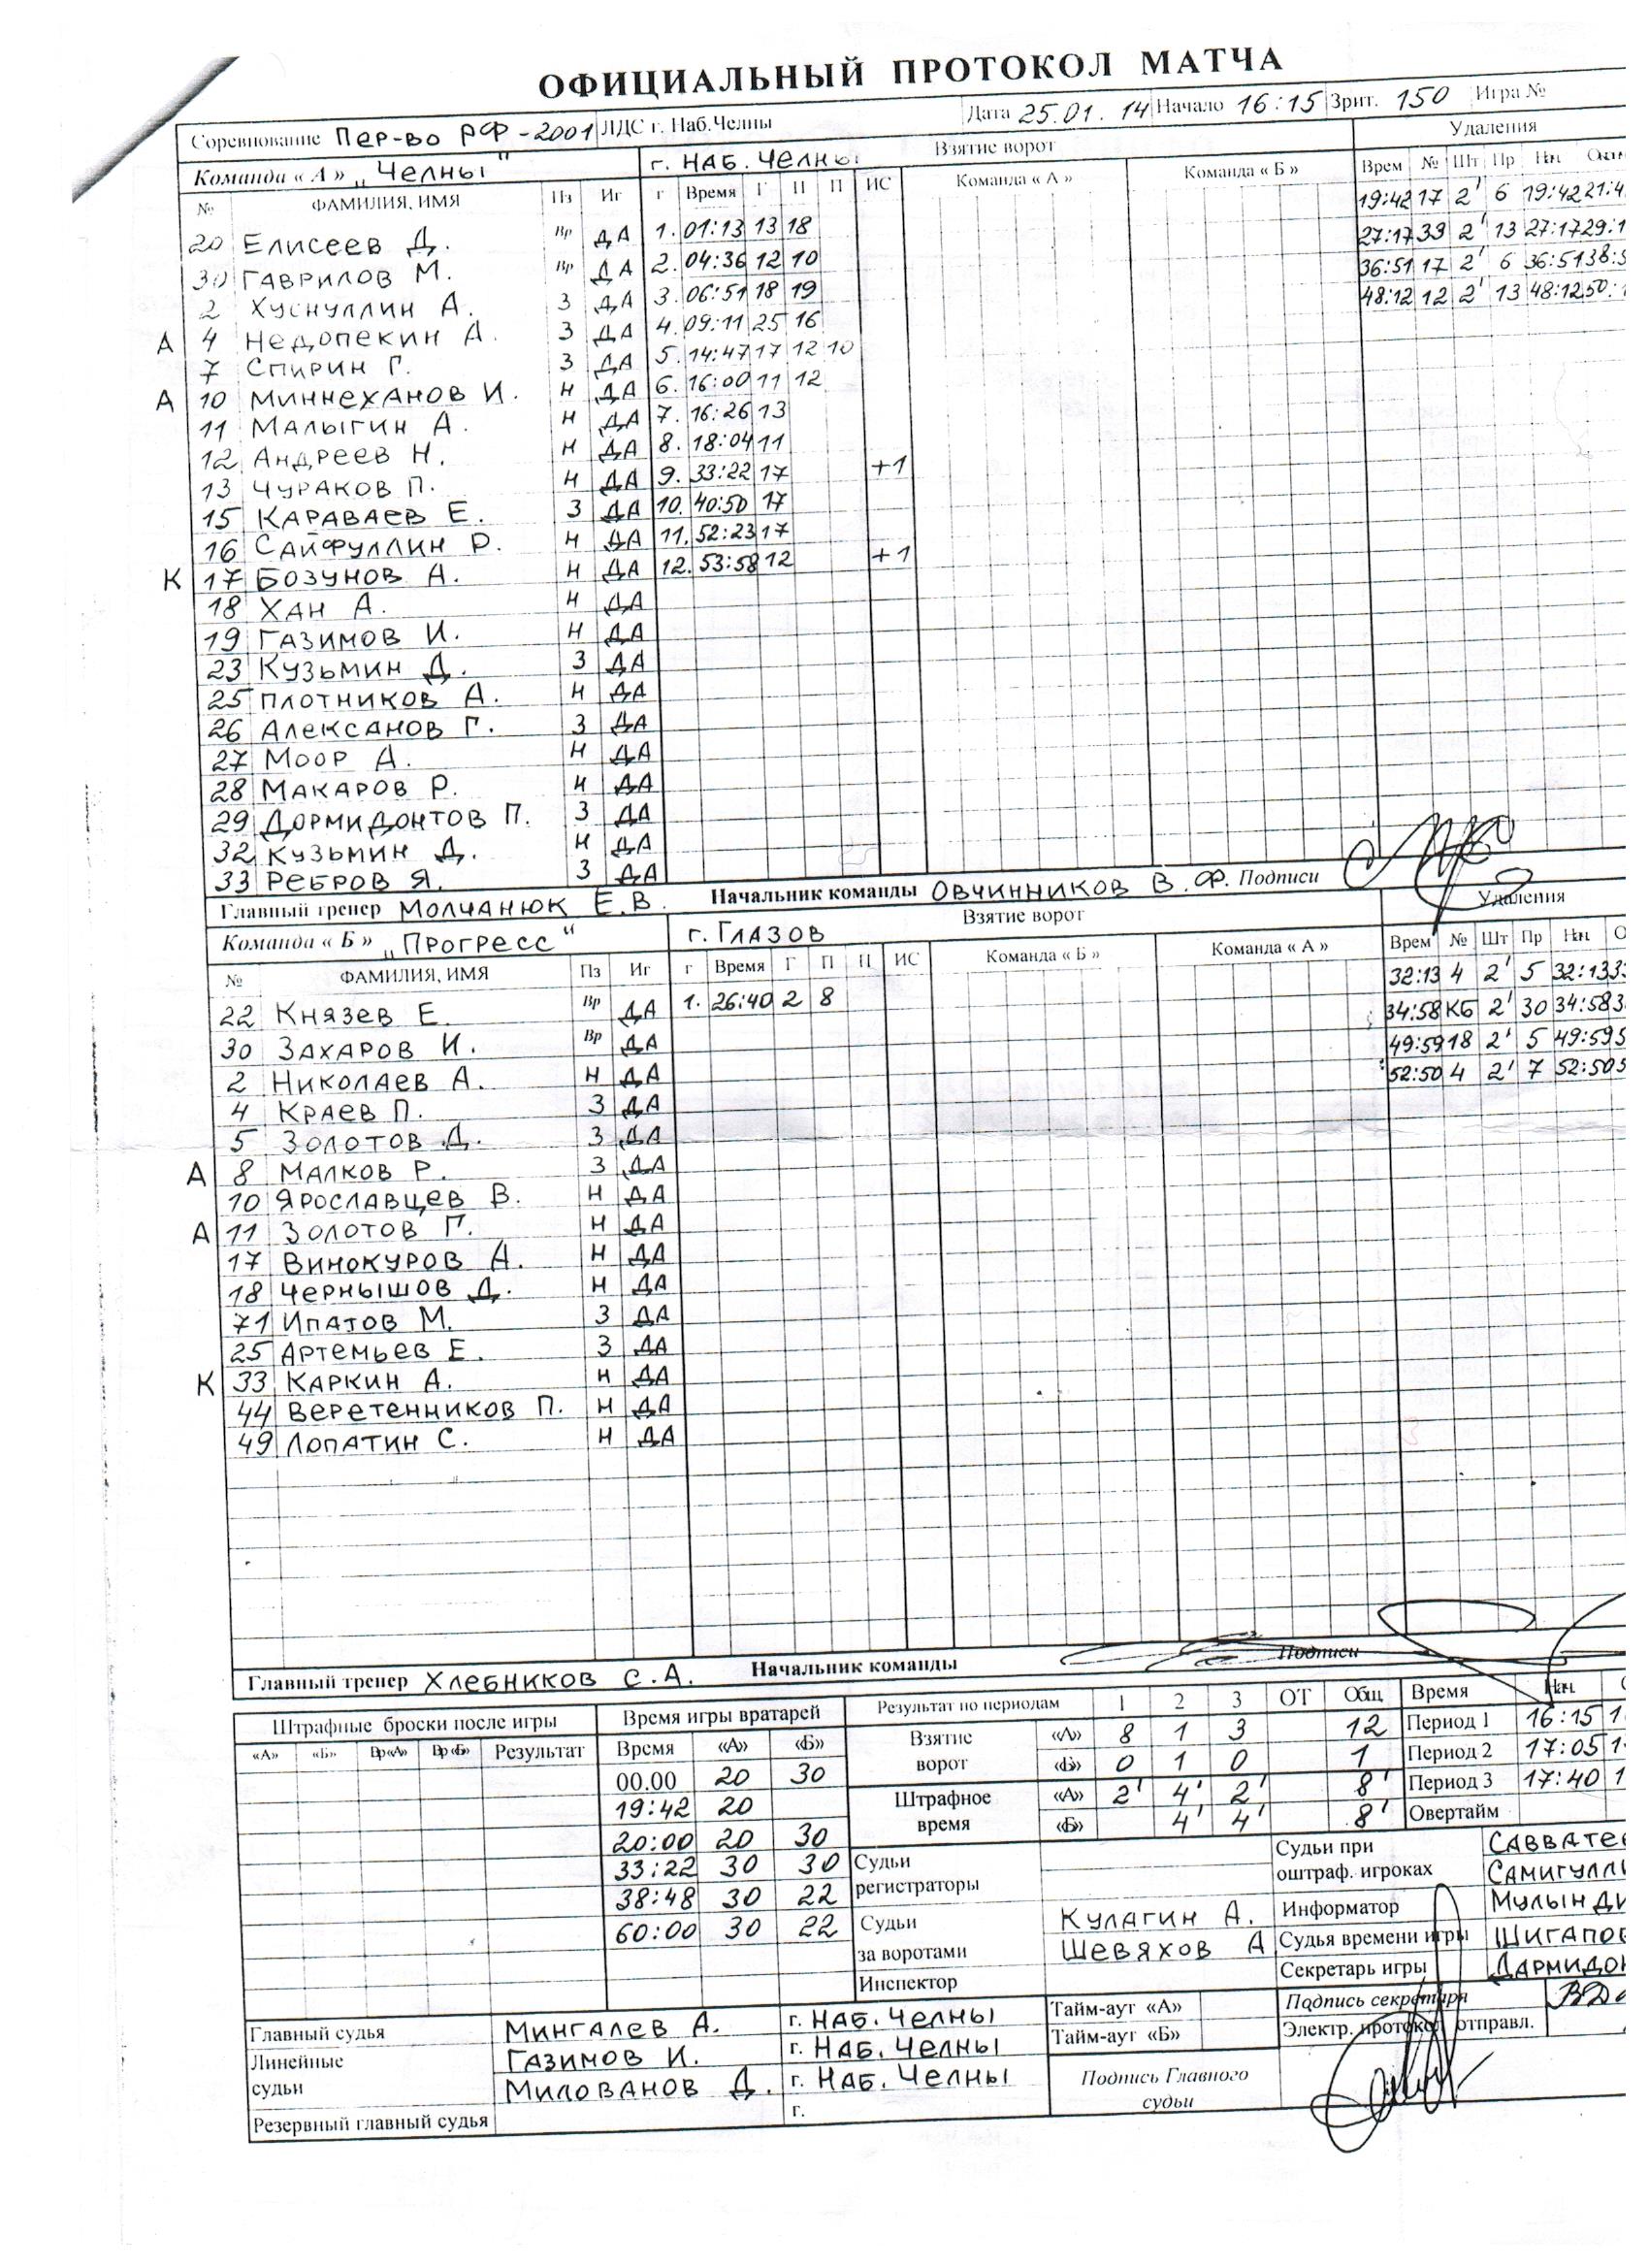 ОФИЦИАЛЬНЫЙ ПРОТОКОЛ МАТЧА
Соревнование Пер-во РФ-2001 ЛДС г. Наб.Челны Дата 25.01.14 Начало 16:15 Зрит. 150 Игра №
Команда « А » „Челны" г. Наб. Челны Взятие ворот Удаления
№ ФАМИЛИЯ, ИМЯ Пз Иг г Время Г П П ИС Команда « А » Команда « Б » Врем № Шт Пр Нач
20 Елисеев Д. Вр ДА 1. 01:13 13 18 19:42 17 2' 6 19:42 21:4
30 Гаврилов М. Вр ДА 2. 04:36 12 10 27:17 33 2' 13 27:17 29:1
2 Хуснуллин А. З ДА 3. 06:51 18 19 36:51 17 2' 6 36:51 38:5
А 4 Недопекин А. З ДА 4. 09:11 25 16 48:12 12 2' 13 48:12 50:1
7 Спирин Г. З ДА 5. 14:47 17 12 10
А 10 Миннеханов И. Н ДА 6. 16:00 11 12
11 Малыгин А. Н ДА 7. 16:26 13
12 Андреев Н. Н ДА 8. 18:04 11
13 Чураков П. Н ДА 9. 33:22 17 +1
15 Караваев Е. З ДА 10. 40:50 17
16 Сайфуллин Р. Н ДА 11. 52:23 17
К 17 Бозунов А. Н ДА 12. 53:58 12 +1
18 Хан А. Н ДА
19 Газимов И. Н ДА
23 Кузьмин Д. З ДА
25 Плотников А. Н ДА
26 Алексанов Г. З ДА
27 Моор А. Н ДА
28 Макаров Р. Н ДА
29 Дормидонтов П. З ДА
32 Кузьмин Д. Н ДА
33 Ребров Я. З ДА
Главный тренер Молчанюк Е.В. Начальник команды Овчинников В.Ф. Подписи
Команда « Б » „Прогресс" г. Глазов Взятие ворот Удаления
№ ФАМИЛИЯ, ИМЯ Пз Иг г Время Г П П ИС Команда « Б » Команда « А » Врем № Шт Пр Нач О
22 Князев Е. Вр ДА 1. 26:40 2 8 32:13 4 2' 5 32:13 3
30 Захаров И. Вр ДА 34:58 КБ 2' 30 34:58 3
2 Николаев А. Н ДА 49:59 18 2' 5 49:59 5
4 Краев П. З ДА 52:50 4 2' 7 52:50 5
5 Золотов Д. З ДА
А 8 Малков Р. З ДА
10 Ярославцев В. Н ДА
А 11 Золотов Г. Н ДА
17 Винокуров А. Н ДА
18 Чернышов Д. Н ДА
71 Ипатов М. З ДА
25 Артемьев Е. З ДА
К 33 Каркин А. Н ДА
44 Веретенников П. Н ДА
49 Лопатин С. Н ДА
Главный тренер Хлебников С.А. Начальник команды Подписи
Штрафные броски после игры Время игры вратарей Результат по периодам 1 2 3 ОТ Общ Время Нач.
«А» «Б» Вр«А» Вр«Б» Результат Время «А» «Б» Взятие ворот «А» 8 1 3 12 Период 1 16:15
00.00 20 30 «Б» 0 1 0 1 Период 2 17:05
19:42 20 Штрафное время «А» 2' 4' 2' 8' Период 3 17:40
20:00 20 30 «Б» 4' 4' 8' Овертайм
33:22 30 30 Судьи регистраторы Судьи при оштраф. игроках Савватее
38:48 30 22 Самигулли
60:00 30 22 Судьи за воротами Кулагин А. Информатор Мулынди
Шевяхов А Судья времени игры Шигапов
Инспектор Секретарь игры Дармидон
Тайм-аут «А» Подпись секретаря
Главный судья Мингалев А. г. Наб. Челны Тайм-аут «Б» Электр. протокол отправл.
Линейные судьи Газимов И. г. Наб. Челны
Милованов Д. г. Наб. Челны Подпись Главного судьи
Резервный главный судья г.